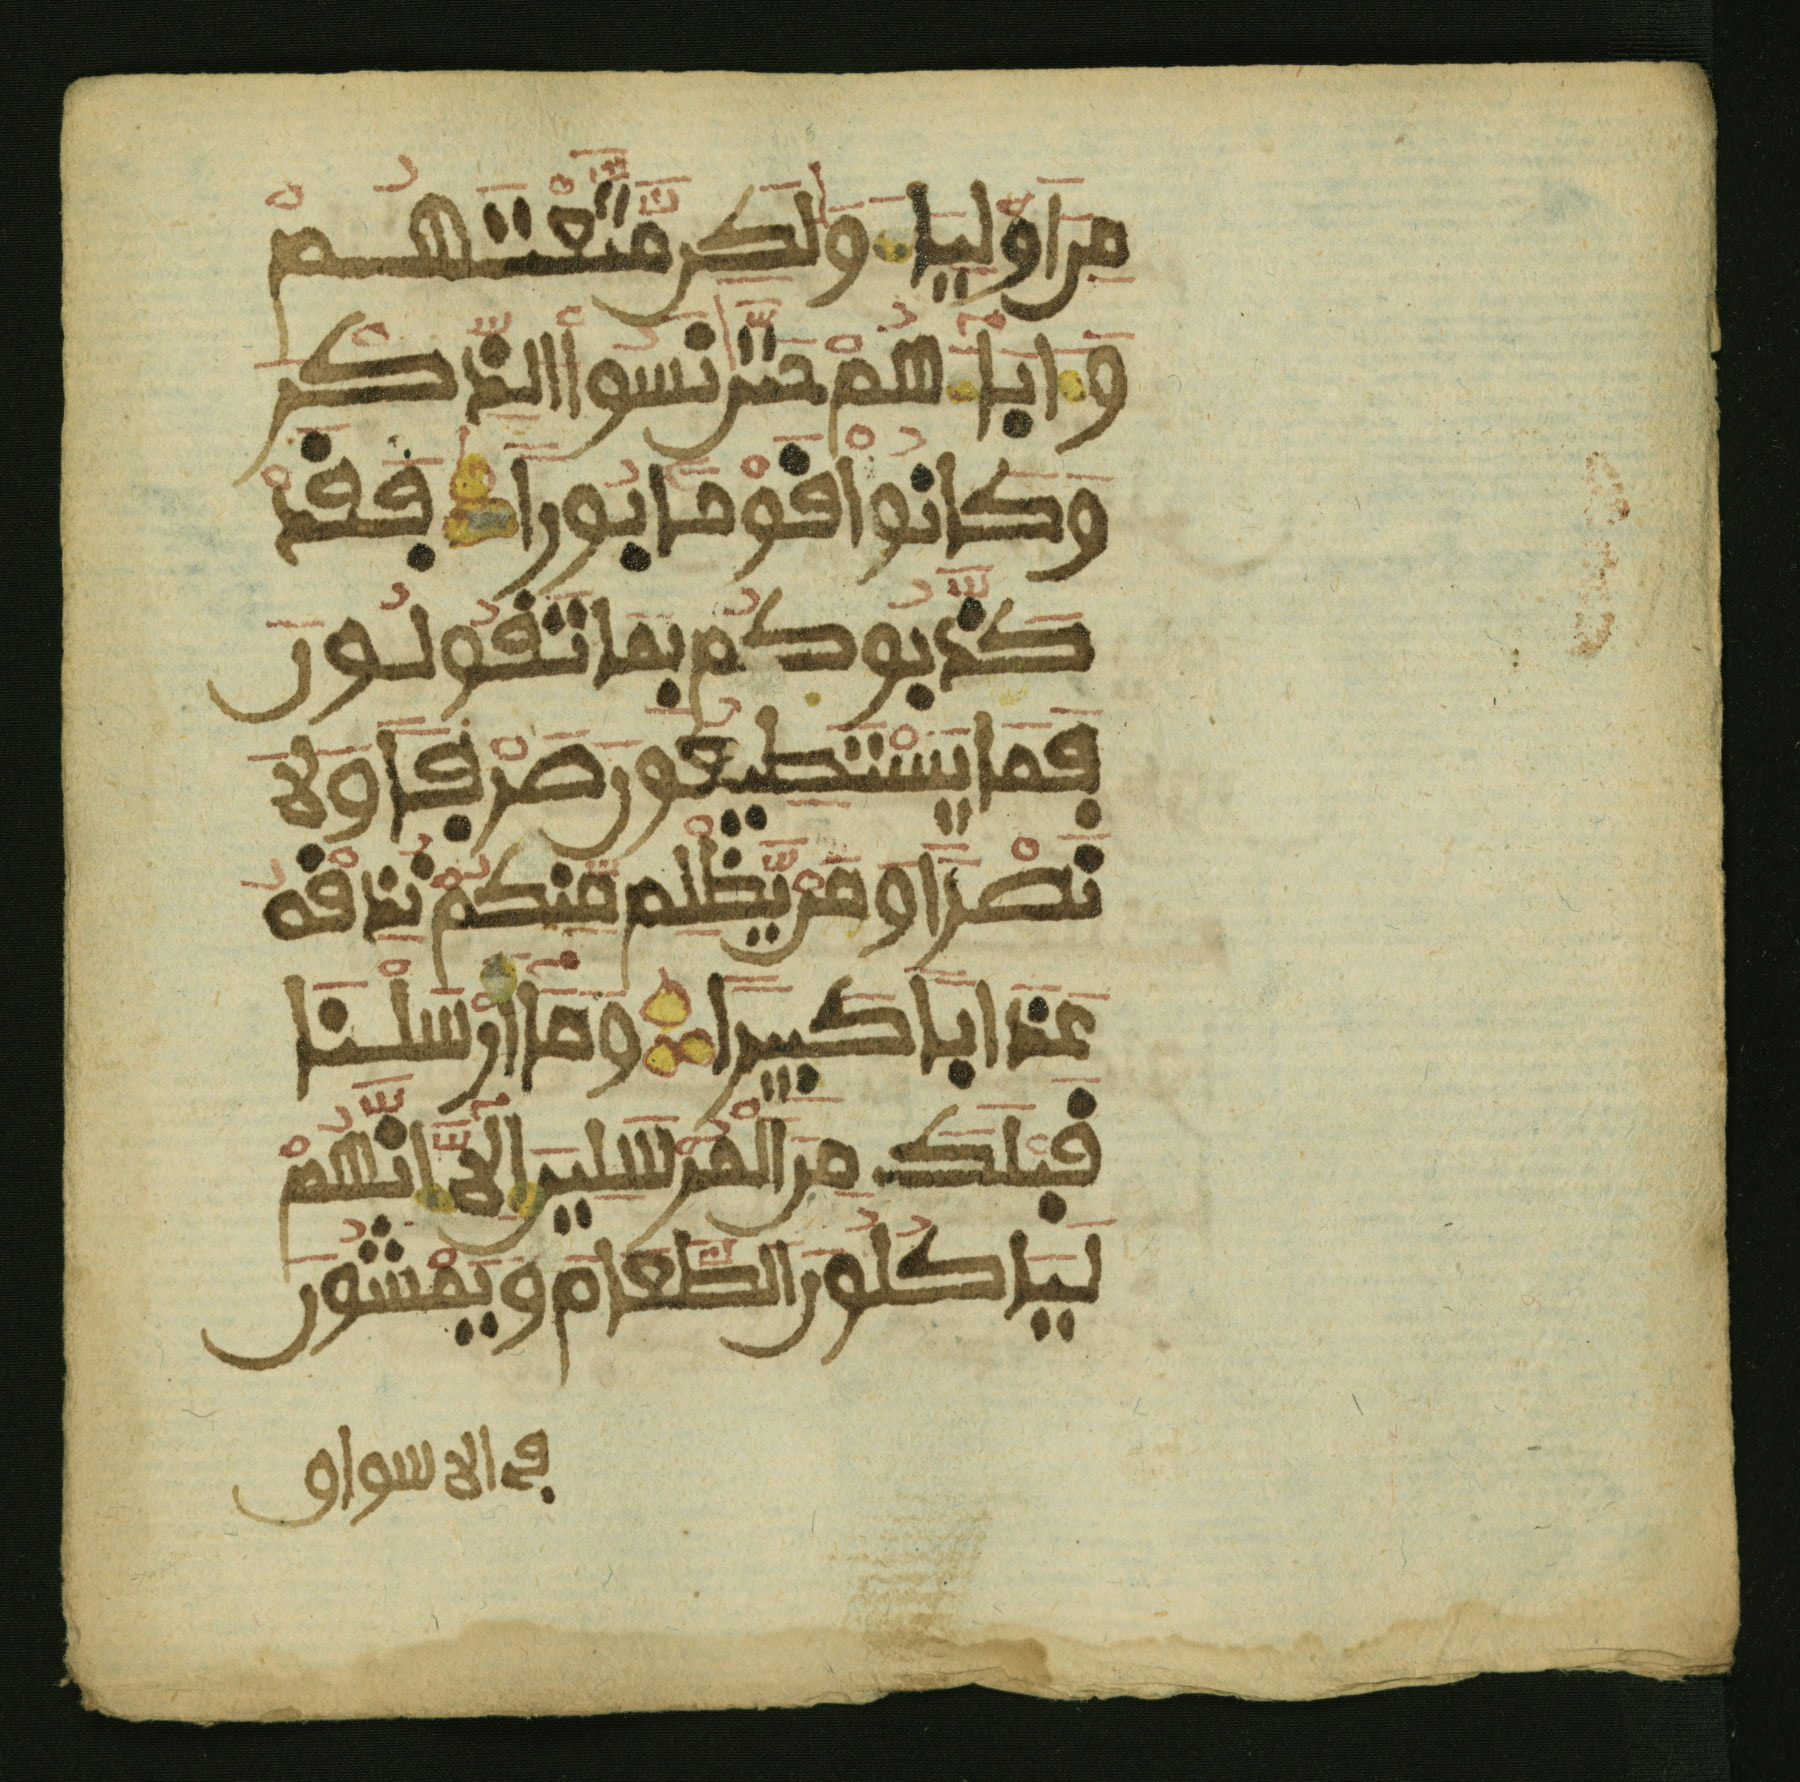 مِنَ اوْلِيَا۬ءَ وَلَٰكِن مَّتَّعْتَهُمْ
وَءَابَآءَهُمْ حَتَّىٰ نَسُوا۟ الذِّكْرَ
وَكَانُوا قَوْمَا بُورا فَقَدْ
كَذَّبُوكُم بِمَا تَقُولُونَ
فَمَا يَسْتَطِيعُونَ صَرْفاً وَلَا
نَصْراً وَمَن يَّظْلِم مِّنكُمْ نُذِقْهُ
عَذَاباً كَبِيراً وَمَآ أَرْسَلْنَا
قَبْلَكَ مِنَ الْمُرْسَلِينَ إِلَّآ إِنَّهُمْ
لَيَاكُلُونَ الطَّعَامَ وَيَمْشُونَ
في الاسواق